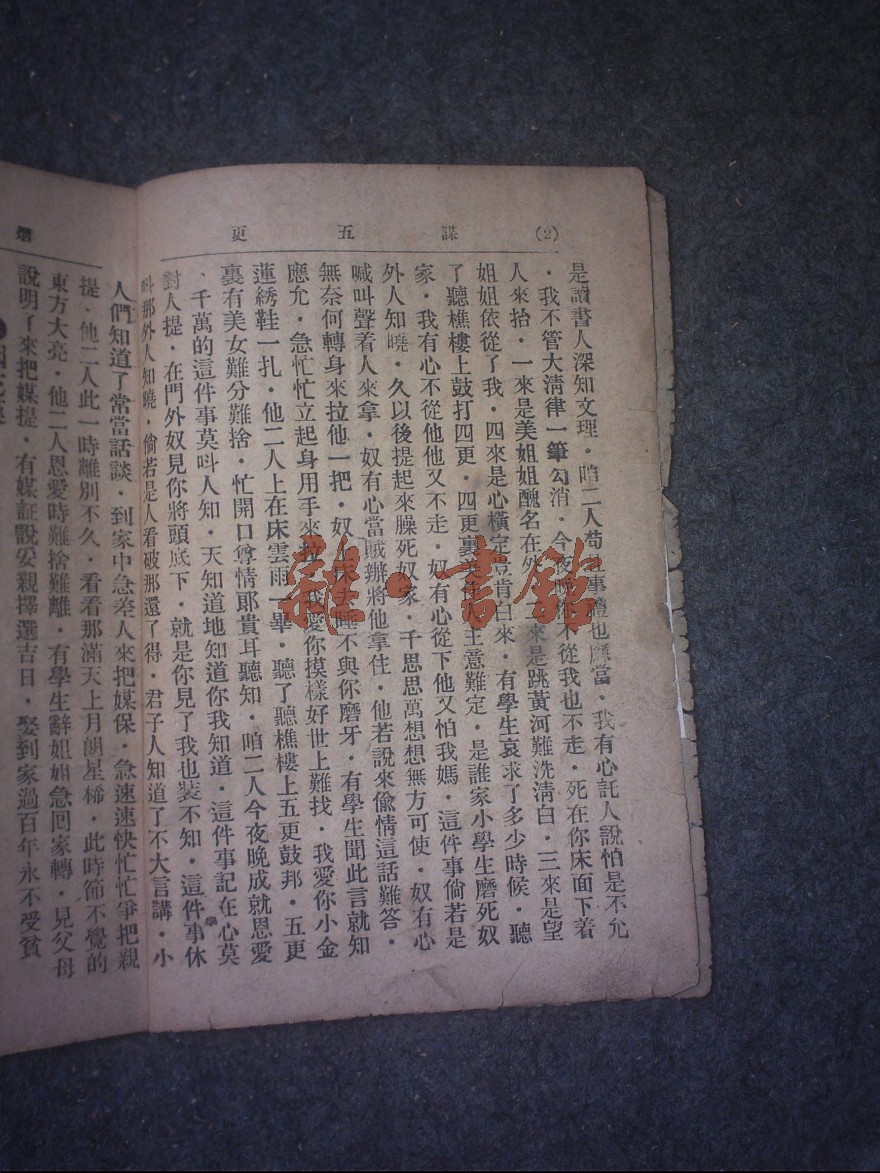 (2) 諜五更
是讀書人深知文理．咱二人苟事禮也應當．我有心託人說怕是不允
．我不管大淸律一筆勾消．今夜晚你不從我也不走．死在你床面下着
人來抬．一來是美姐姐醜名在外．二來是跳黃河難洗淸白．三來是望
姐姐依從了我．四來是心橫定意肯白來．有學生哀求了多少時候．聽
了聽樵樓上鼓打四更．四更裏主意難定．是誰家小學生磨死奴
家．我有心不從他他又不走．奴有心從下他又怕我媽．這件事倘若是
外人知曉．久以後提起來臊死奴家．千思思萬想想無方可使．奴有心
喊叫聲着人來拿．奴有心當賊辦將他拿住．他若說來偸情這話難答．
無奈何轉身來拉他一把．奴上床去睡不與你磨牙．有學生聞此言就知
應允．急忙忙立起身用手來拉．我愛你摸樣好世上難找．我愛你小金
蓮綉鞋一扎．他二人上在床雲雨一畢．聽了聽樵樓上五更鼓邦．五更
裏有美女難分難捨．忙開口尊情郞貴耳聽知．咱二人今夜晚成就恩愛
．千萬的這件事莫呌人知．天知道地知道你我知道．這件事記在心莫
對人提．在門外奴見你將頭底下．就是你見了我也裝不知．這件事休
呌那外人知曉．倘若是人看破那還了得．君子人知道了不大言講．小
人們知道了常當話談．到家中急差人來把媒保．急速速快忙忙爭把親
提．他二人此一時離別不久．看看那滿天上月朗星稀．此時節不覺的
東方大亮．他二人恩愛時難捨難離．有學生辭姐姐急回家轉．見父母
說明了來把媒提．有媒証說妥親擇選吉日．娶到家過百年永不受貧
烟
雜·書館